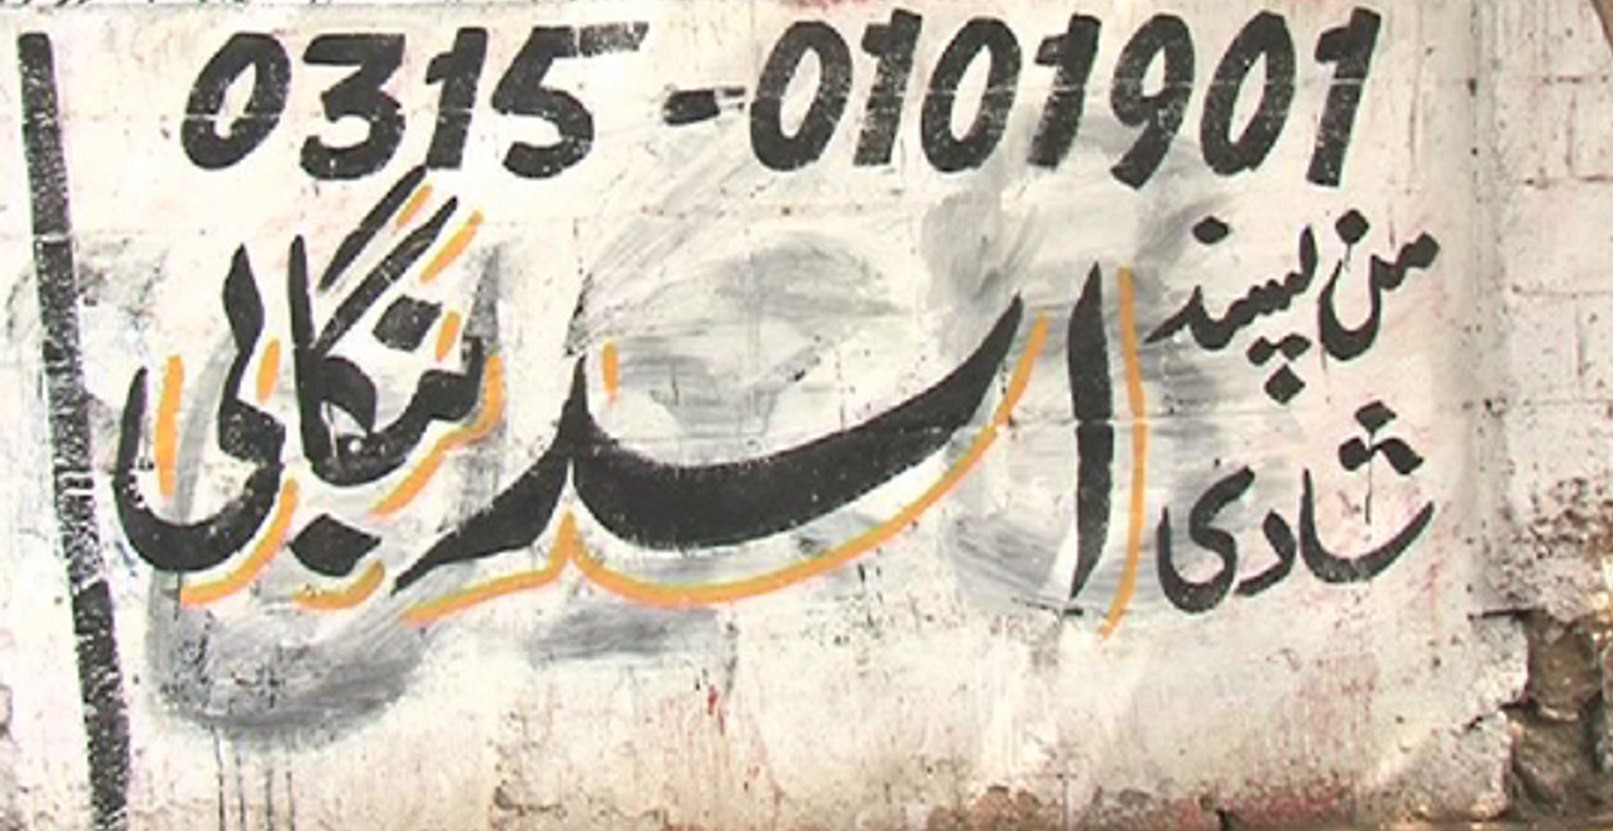 0315-0101901
من پسند
شادی
اسد بنگالی